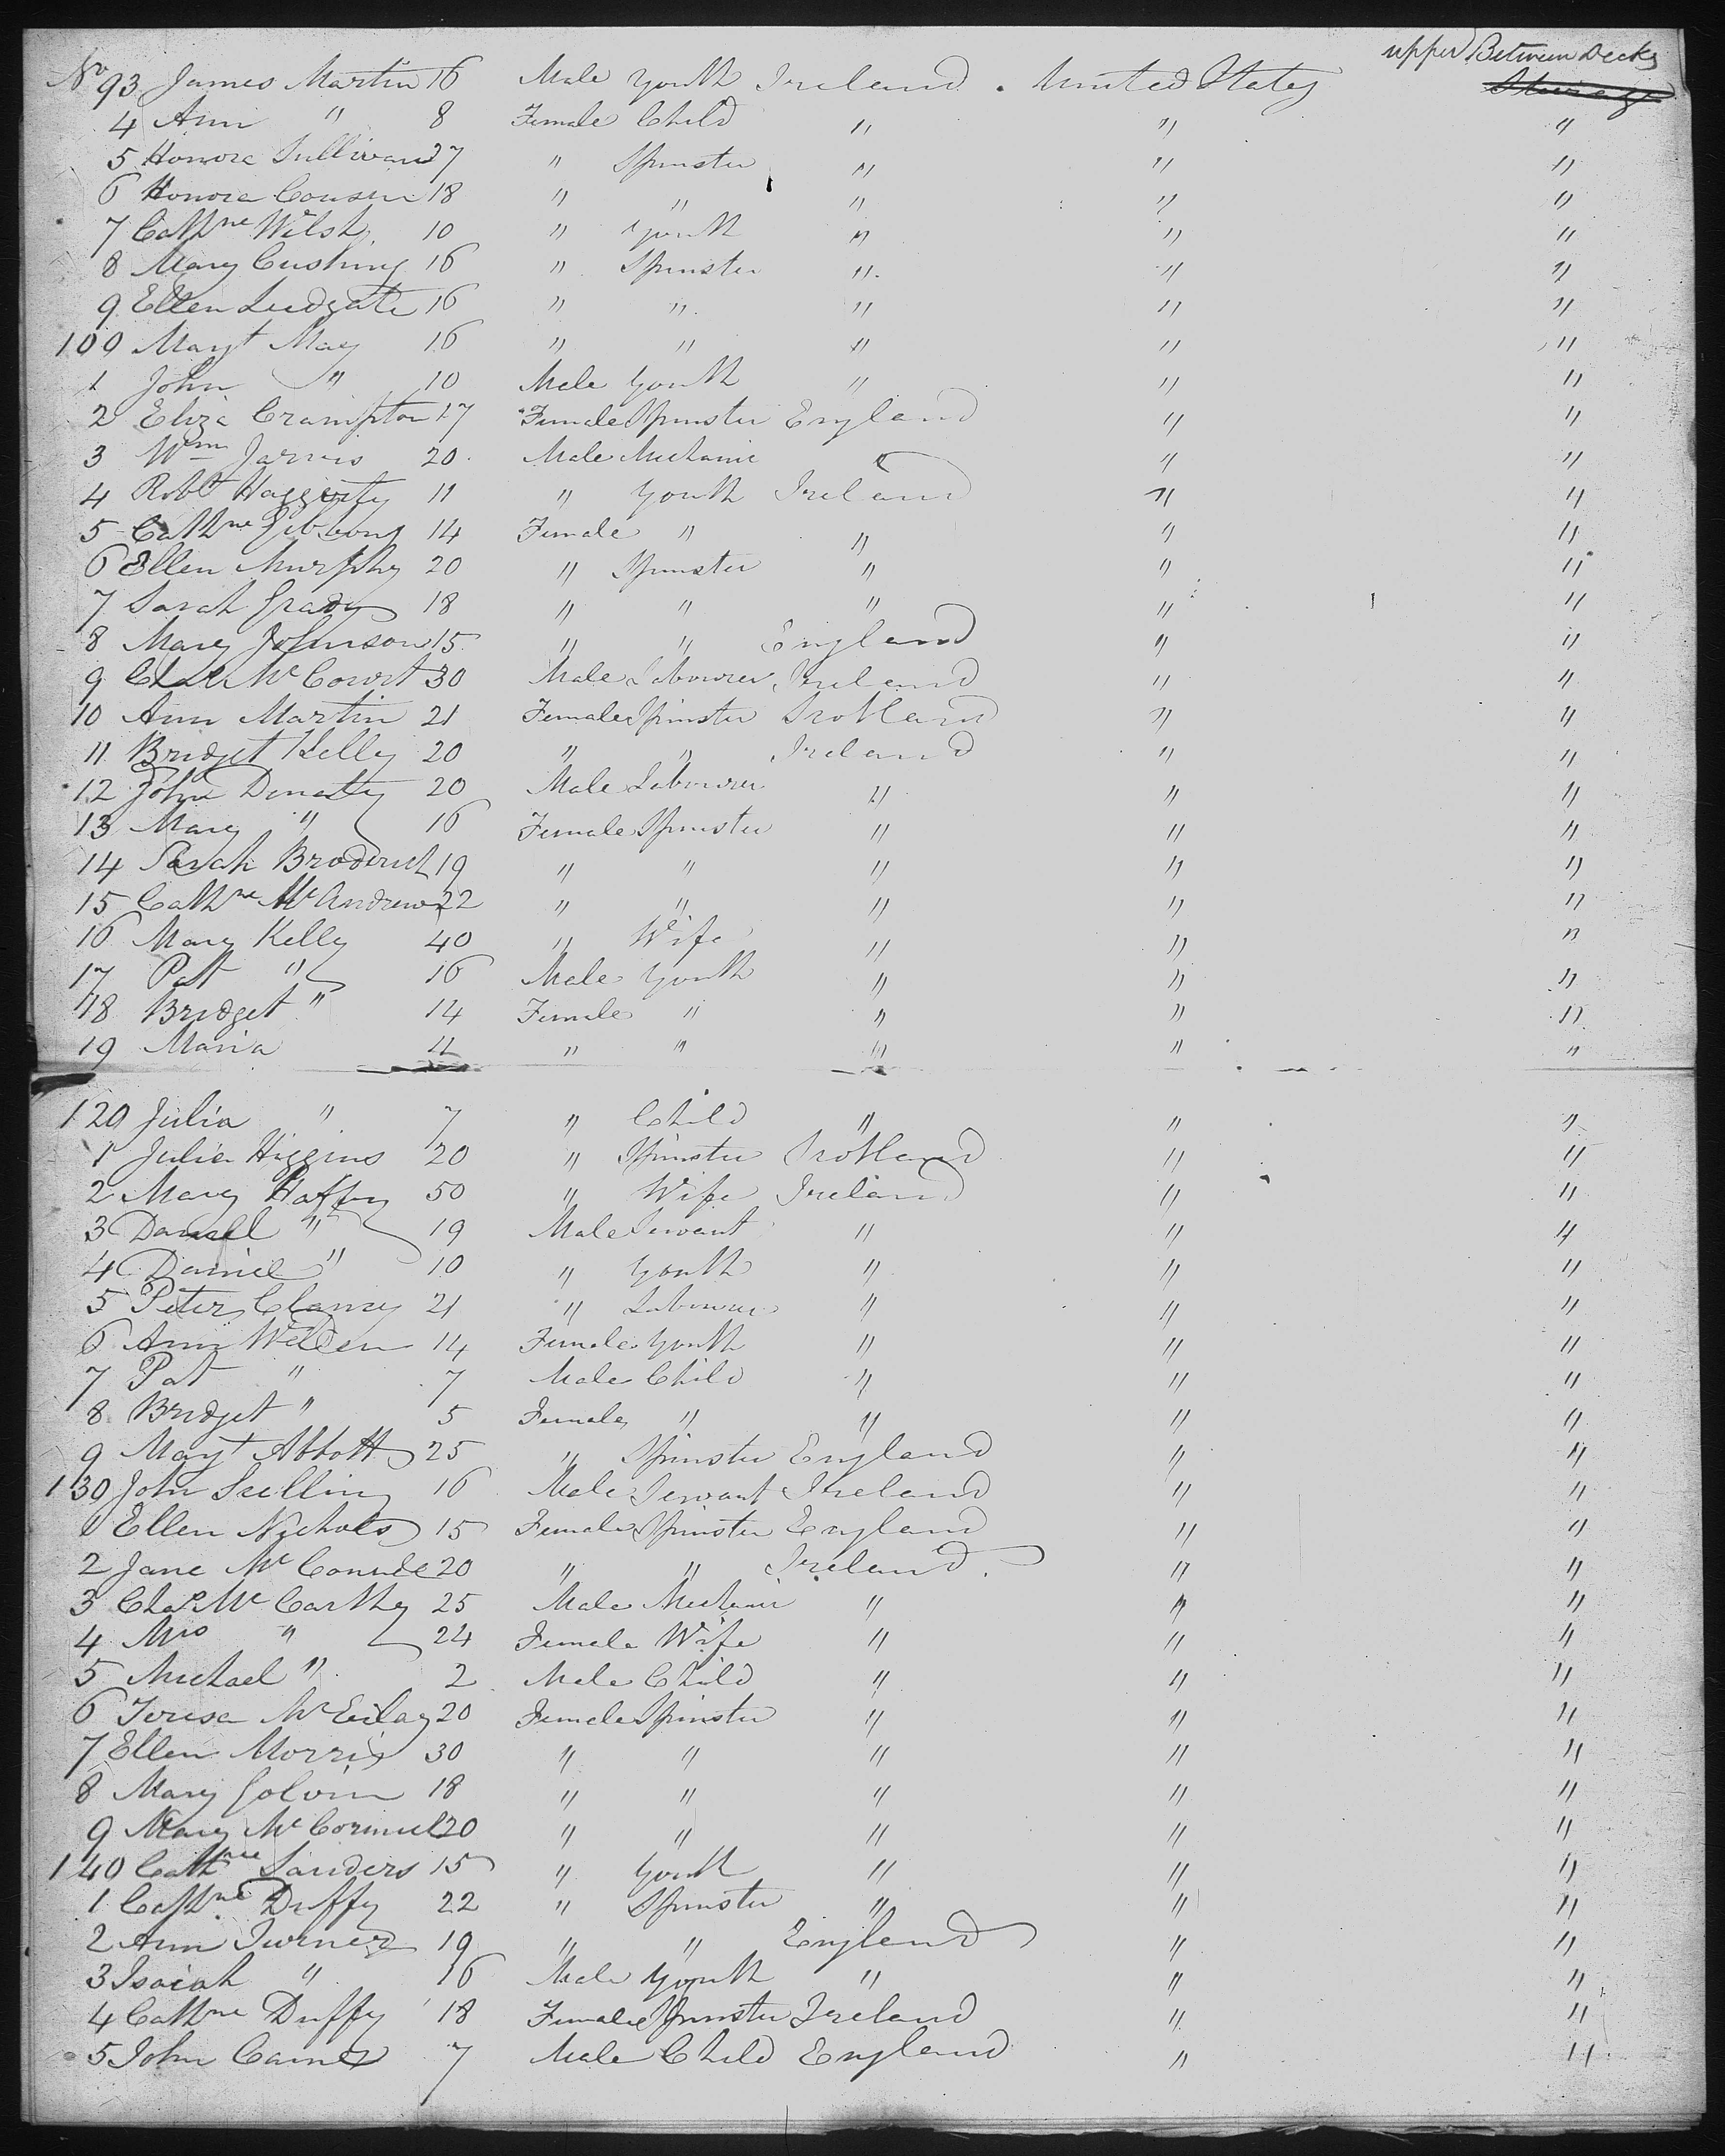 upper Between Decks
No 93 James Martin 16 Male Youth Ireland . United States Steerage
4 Ann " 8 Female Child " " "
5 Honora Sullivan 37 " Spinster " " "
6 Honora Cousin 18 " " " " "
7 Cathne Welsh 10 " Youth " " "
8 Mary Cushing 16 " Spinster " " "
9 Ellen Ludgate 16 " " " " "
100 Margt May 16 " " " " "
1 John " 10 Male Youth " " "
2 Eliza Crampton 17 Female Spinster England " "
3 Wm Jarvis 20 Male Mechanic " " "
4 Robt Haggerty 11 " Youth Ireland " "
5 Cathne Gibbons 14 Female " " " "
6 Ellen Murphy 20 " Spinster " " "
7 Sarah Grady 18 " " " " "
8 Mary Johnson 15 " " England " "
9 Chas McCourt 30 Male Labourer Ireland " "
10 Ann Martin 21 Female Spinster Scotland " "
11 Bridget Kelly 20 " " Ireland " "
12 John 20 Male Labourer " " "
13 Mary " 16 Female Spinster " " "
14 Sarah Broderick 19 " " " " "
15 Cathne McAndrew 22 " " " " "
16 Mary Kelly 40 " Wife " " "
17 Pat " 16 Male Youth " " "
18 Bridget " 14 Female " " " "
19 Maria 11 " " " " "
120 Julia " 7 " Child " " "
1 Julia Higgins 20 " Spinster Scotland " "
2 Mary Haffey 50 " Wife Ireland " "
3 " 19 Male Servant " " "
4 Daniel " 10 " Youth " " "
5 Peter Clancy 21 " Labourer " " "
6 Ann Welden 14 Female Youth " " "
7 Pat " 7 Male Child " " "
8 Bridget " 5 Female " " " "
9 Margt Abbott 25 " Spinster England " "
130 John 16 Male Servant Ireland " "
1 Ellen Nichols 15 Female Spinster England " "
2 Jane Mc 20 " " Ireland . " "
3 Chas McCarthy 25 Male Mechanic " " "
4 Mrs " 24 Female Wife " " "
5 Michael " 2 Male Child " " "
6 Teresa 20 Female Spinster " " "
7 Ellen Morris 30 " " " " "
8 Mary Golvin 18 " " " " "
9 Mary McCormick 20 " " " " "
140 Cathne Sanders 15 " Youth " " "
1 Cathne Duffy 22 " Spinster " " "
2 Ann Turner 19 " " England " "
3 Isaiah " 16 Male Youth " " "
4 Cathne Duffy 18 Female Spinster Ireland " "
5 John 7 Male Child England " "